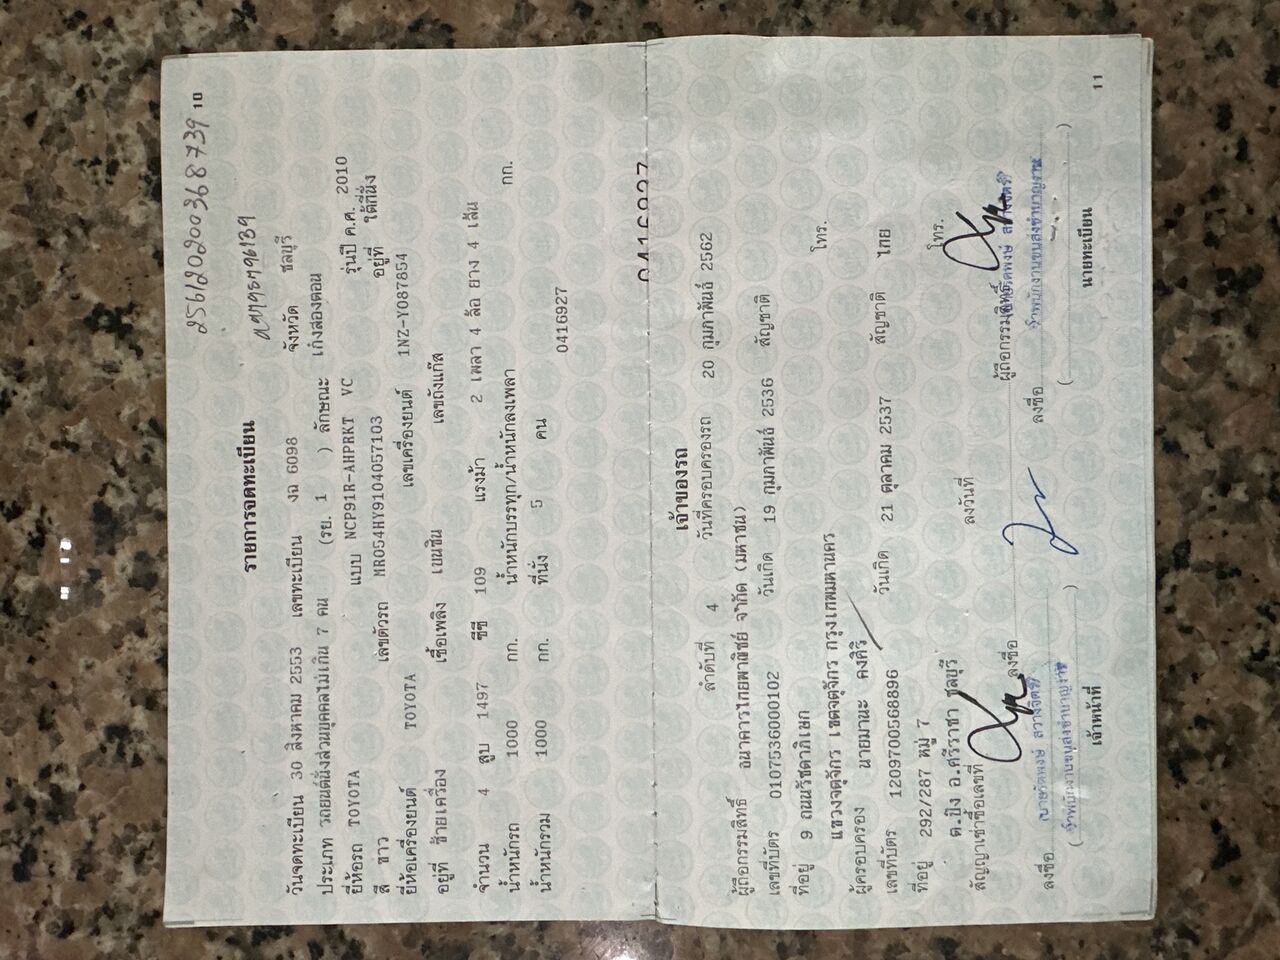 10
256120200368739
รายการจดทะเบียน
วันจดทะเบียน 30 สิงหาคม 2553 เลขทะเบียน งฉ 6098 จังหวัด ชลบุรี
ประเภท รถยนต์นั่งส่วนบุคคลไม่เกิน 7 คน (รย. 1 ) ลักษณะ เก๋งสองตอน
ยี่ห้อรถ TOYOTA แบบ NCP91R-AHPRKT VC รุ่นปี ค.ศ. 2010
สี ขาว เลขตัวรถ MR054HY9104057103 อยู่ที่ ใต้ที่นั่ง
ยี่ห้อเครื่องยนต์ TOYOTA เลขเครื่องยนต์ 1NZ-Y087854
อยู่ที่ ซ้ายเครื่อง เชื้อเพลิง เบนซิน เลขถังแก๊ส
จำนวน 4 สูบ 1497 ซีซี 109 แรงม้า 2 เพลา 4 ล้อ ยาง 4 เส้น
น้ำหนักรถ 1000 กก. น้ำหนักบรรทุก/น้ำหนักลงเพลา กก.
น้ำหนักรวม 1000 กก. ที่นั่ง 5 คน
0416927
0416927
เจ้าของรถ
ลำดับที่ 4 วันที่ครอบครองรถ 20 กุมภาพันธ์ 2562
ผู้ถือกรรมสิทธิ์ ธนาคารไทยพาณิชย์ จำกัด (มหาชน)
เลขที่บัตร 0107536000102 วันเกิด 19 กุมภาพันธ์ 2536 สัญชาติ
ที่อยู่ 9 ถนนรัชดาภิเษก โทร.
แขวงจตุจักร เขตจตุจักร กรุงเทพมหานคร
ผู้ครอบครอง นายมานะ คงคีรี
เลขที่บัตร 1209700568896 วันเกิด 21 ตุลาคม 2537 สัญชาติ ไทย
ที่อยู่ 292/287 หมู่ 7 โทร.
ต.บึง อ.ศรีราชา ชลบุรี
สัญญาเช่าซื้อเลขที่ ลงวันที่
ลงชื่อ ผู้ถือกรรมสิทธิ์
ลงชื่อ ลงชื่อ
( เจ้าพนักงานขนส่งชำนาญงาน ) ( เจ้าพนักงานขนส่งชำนาญงาน )
เจ้าหน้าที่ นายทะเบียน
11